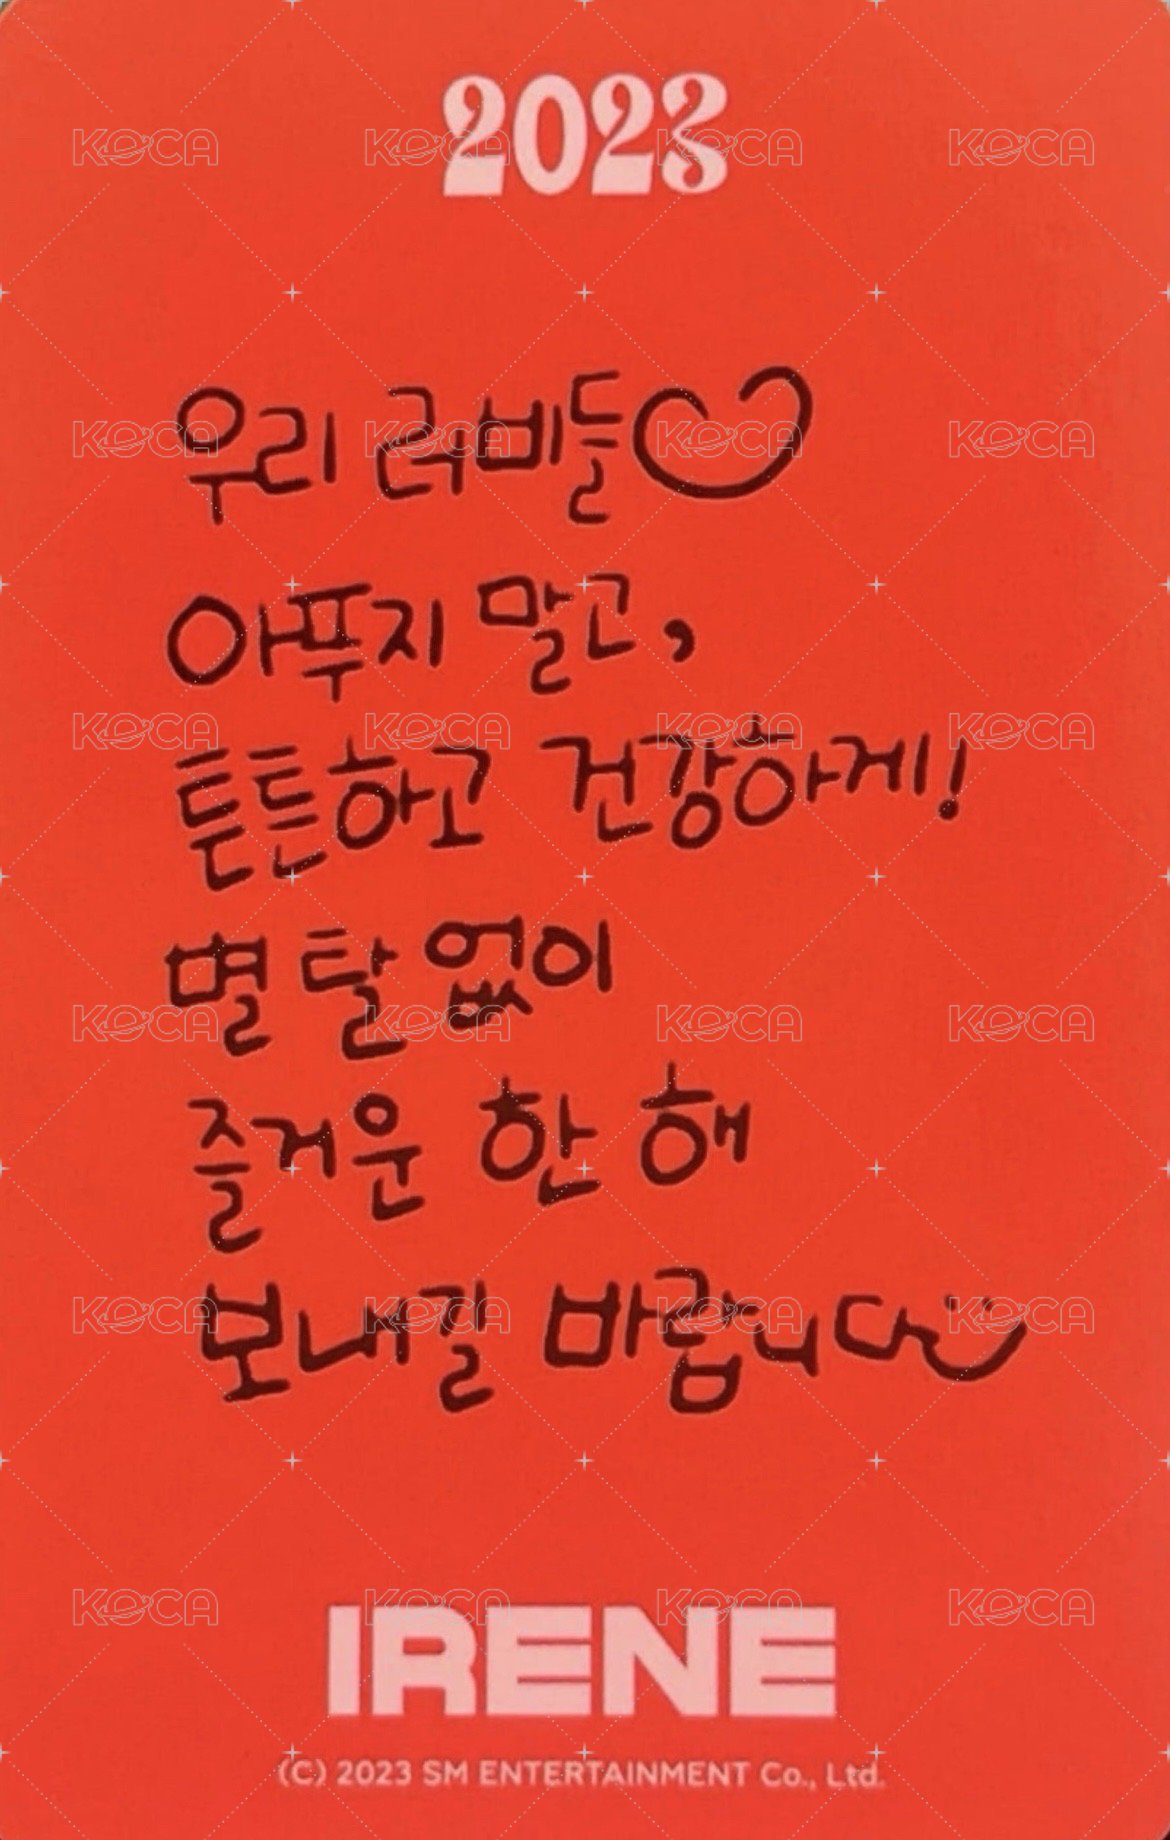 2023
우리 러비들♡
아푸지 말고,
튼튼하고 건강하게!
별 탈 없이
즐거운 한 해
보내길 바랍니다
IRENE
(C) 2023 SM ENTERTAINMENT Co., Ltd.
KOCA